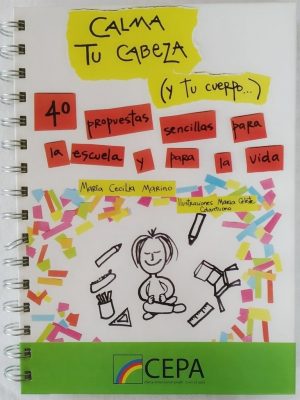 CALMA
TU CABEZA
(Y TU CUERPO...)
40 propuestas sencillas para
la escuela y para la vida
MARÍA CECILIA MARINO
Ilustraciones María
CEPA